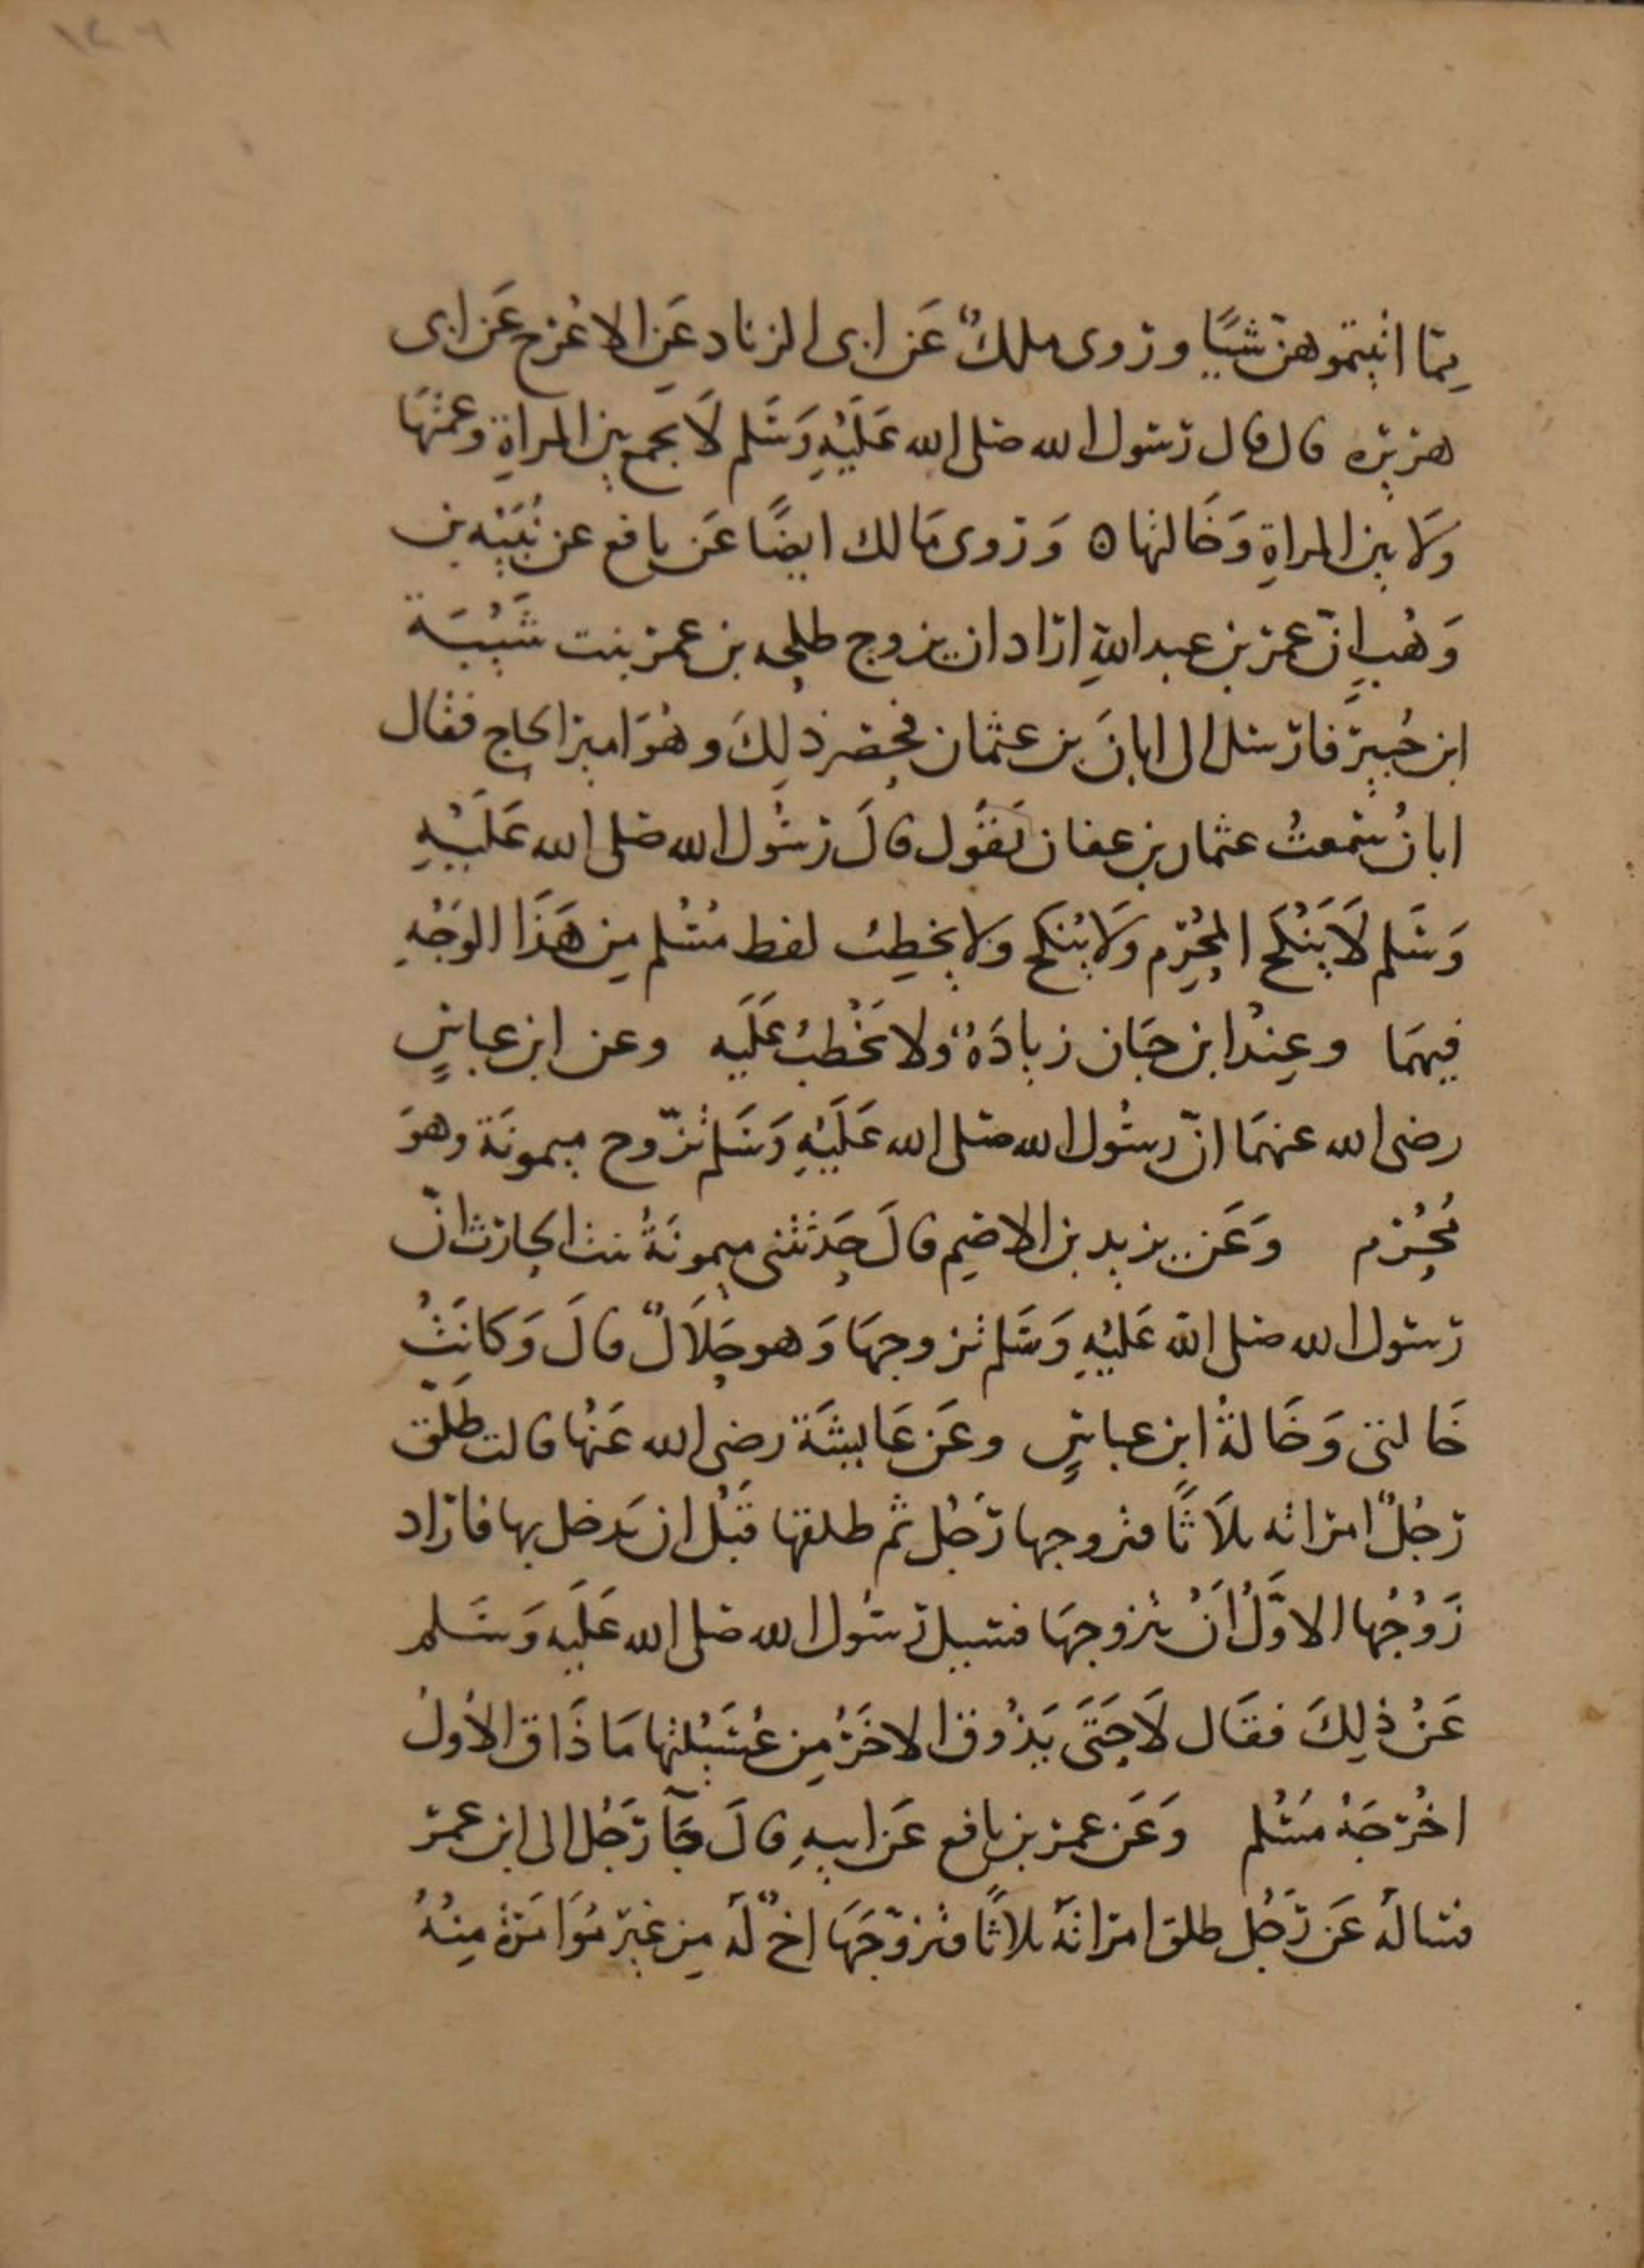 مما اتيتموهن شيًا وروى ملكٌ عَن ابى الزناد عَنِ الاعْرج عَن ابى
هريره قال قال رسول الله صلى الله عَلَيْهِ وَسَلم لَا يجمع بين المراةِ وعمتهَا
وَلا بين المراةِ وَخَالتها ٥ وَروى مَالك ايضًا عَن نافع عن نُبَيْه بن
وَهْبٍ انّ عمر بن عبد اللهِ اراد ان يزوج طلحه بن عمر بنت شَيْبَة
ابن جُبير فارسل الى ابانَ بن عثمان فحضر ذلِكَ وهُوَ امير الحاج فقال
ابانُ سمعتُ عثمان بن عفان يَقُول قالَ رسُول الله صلى الله عَلَيْهِ
وَسَلم لَا يَنْكَح المحْرِم وَلَا يُنكَح ولا يخطِبُ لفظ مُسْلم مِن هَذَا الوَجْهِ
فيهمَا وعِنْد ابن حبَان زيادَةٌ ولا يُخْطَبُ عَلَيه وعن ابن عباسٍ
رضى الله عنهمَا انّ رسُول الله صلى الله عَلَيْهِ وَسَلم تزّوج ميمونَة وهوَ
مُحْرِم وَعَن يزيد بن الاصَم قالَ حَدثتنى ميمونَةُ بنت الحارث انّ
رسول الله صلى الله عَليْهِ وَسَلم تزوجهَا وَهو حَلَالٌ قالَ وَكانَتْ
خَالتى وَخَالةُ ابن عباسٍ وعَن عَايشَة رضى الله عَنْها قالت طَلّق
رَجُلٌ امراته ثلَاثًا فتزوجها رَجُل ثم طلقها قَبْل ان يَدخل بها فاراد
زَوْجُها الاوَّلُ أنْ يتزوجهَا فسيل رسُول الله صلى الله عَلَيه وَسَلم
عَنْ ذلِكَ فقَال لَا حَتَى يَذُوق الاخَرُ مِن عُسَيْلتها مَا ذَاق الأولُ
اخْرَجَهُ مُسْلم وَعَن عمر بن نافع عَن ابيهِ قالَ جَآ رَجُل الى ابن عمر
فسالَه عَن رَجُل طلق امراتَهُ ثلاثًا فتزوّجَهَا اخٌ لَه مِن غير مُوَامَرة مِنْهُ